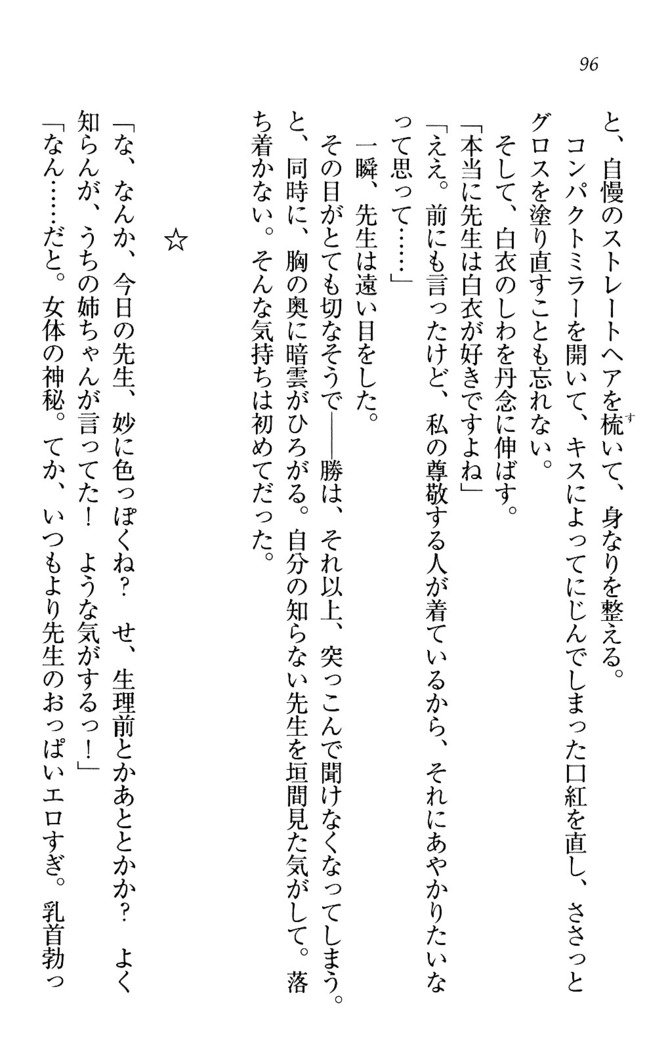 96
と、自慢のストレートヘアを梳いて、身なりを整える。
コンパクトミラーを開いて、キスによってにじんでしまった口紅を直し、ささっと
グロスを塗り直すことも忘れない。
そして、白衣のしわを丹念に伸ばす。
「本当に先生は白衣が好きですよね」
「ええ。前にも言ったけど、私の尊敬する人が着ているから、それにあやかりたいな
って思って……」
一瞬、先生は遠い目をした。
その目がとても切なそうで――勝は、それ以上、突っこんで聞けなくなってしまう。
と、同時に、胸の奥に暗雲がひろがる。自分の知らない先生を垣間見た気がして。落
ち着かない。そんな気持ちは初めてだった。
☆
「な、なんか、今日の先生、妙に色っぽくね？　せ、生理前とかあととかか？　よく
知らんが、うちの姉ちゃんが言ってた！　ような気がするっ！」
「なん……だと。女体の神秘。てか、いつもより先生のおっぱいエロすぎ。乳首勃っ